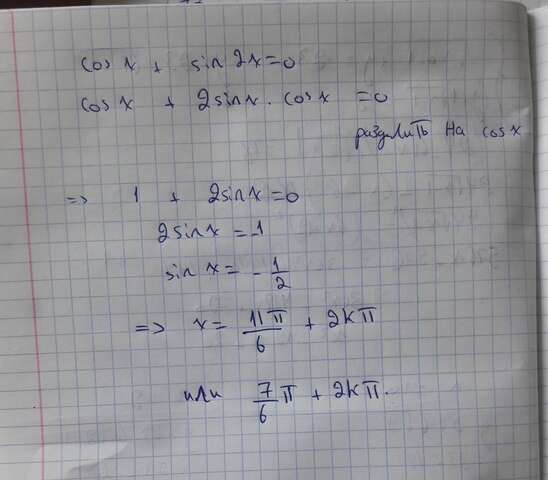 cos x + sin 2x = 0
cos x + 2 sin x . cos x = 0
разделить на cos x
=> 1 + 2 sin x = 0
2 sin x = -1
sin x = - 1/2
=> x = 11π/6 + 2кπ
или 7/6 π + 2кπ.